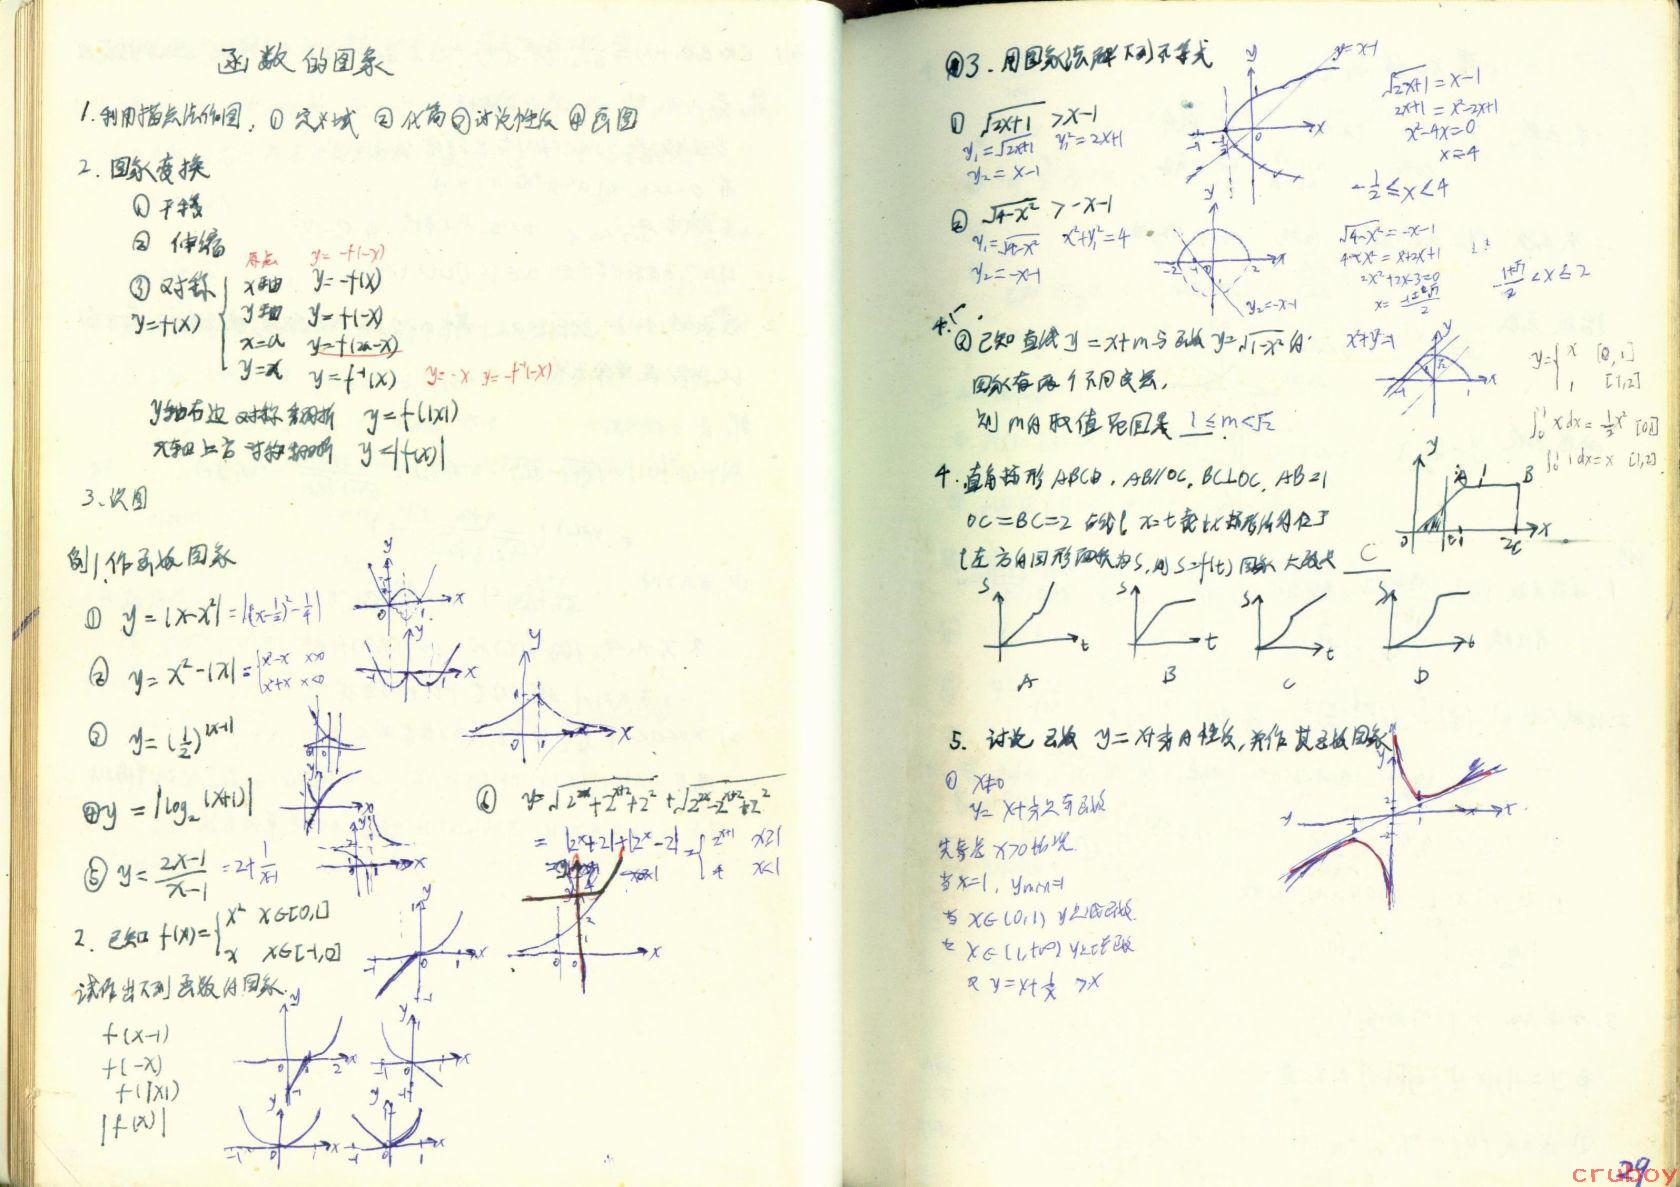 函数的图象
1.利用描点法作图. ① 定义域 ② 化简 ③讨论性质 ④ 画图
2.图象变换
① 平移
② 伸缩
原点 y=-f(-x)
③ 对称 x轴 y=-f(x)
y=f(x) y轴 y=f(-x)
x=a y=f(2a-x)
y=x y=f⁻¹(x) y=-x y=-f⁻¹(-x)
y轴右边对称翻折 y=f(|x|)
x轴上方对称翻折 y=|f(x)|
3.识图
例1.作函数图象
① y=|x-x²|=|(x-1/2)²-1/4|
② y=x²-|x|={x²-x x>0
x²+x x<0
③ y=(1/2)^|x-1|
④ y=|log₂(x+1)|
⑤ y=(2x-1)/(x-1)=2+1/(x-1)
⑥
=|2ˣ+2|+|2ˣ-2|={2ˣ⁺¹ x≥1
4 x<1
2.已知 f(x)={x² x∈[0,1]
x x∈[-1,0]
试作出下列函数的图象.
f(x-1)
f(-x)
f(|x|)
|f(x)|
3.用图象法解下列不等式
① √(2x+1) >x-1
y₁=√(2x+1) y₁²=2x+1
y₂=x-1
y=x-1
√(2x+1)=x-1
2x+1=x²-2x+1
x²-4x=0
x=4
-1/2≤x<4
② √(4-x²) >-x-1
y₁=√(4-x²) x²+y₁²=4
y₂=-x-1
y₂=-x-1
√(4-x²)=-x-1
2x²+2x-3=0
<x≤2
② 已知直线 y=x+m与函数 y=√(1-x²)的
图象有两个不同交点,
则 m的取值范围是 1≤m<√2
x²+y²=1
y={x [0,1]
1 [1,2]
∫₀¹xdx=1/2x² [0,1]
1dx=x [1,2]
4.直角梯形 ABCD, AB//OC, BC⊥OC, AB=1
OC=BC=2 直线l x=t截此梯形所得位于
l左方的图形面积为S,则 S=f(t)图象大致为 C
A B C D
5. 讨论函数 y=x+1/x的性质,并作其函数图象
① x≠0
y=x+1/x是奇函数
先考虑 x>0情况
当x=1, ymin=1
当 x∈(0,1) y是减函数
x∈(1,+∞) y是增函数
又 y=x+1/x >x
29
cruboy